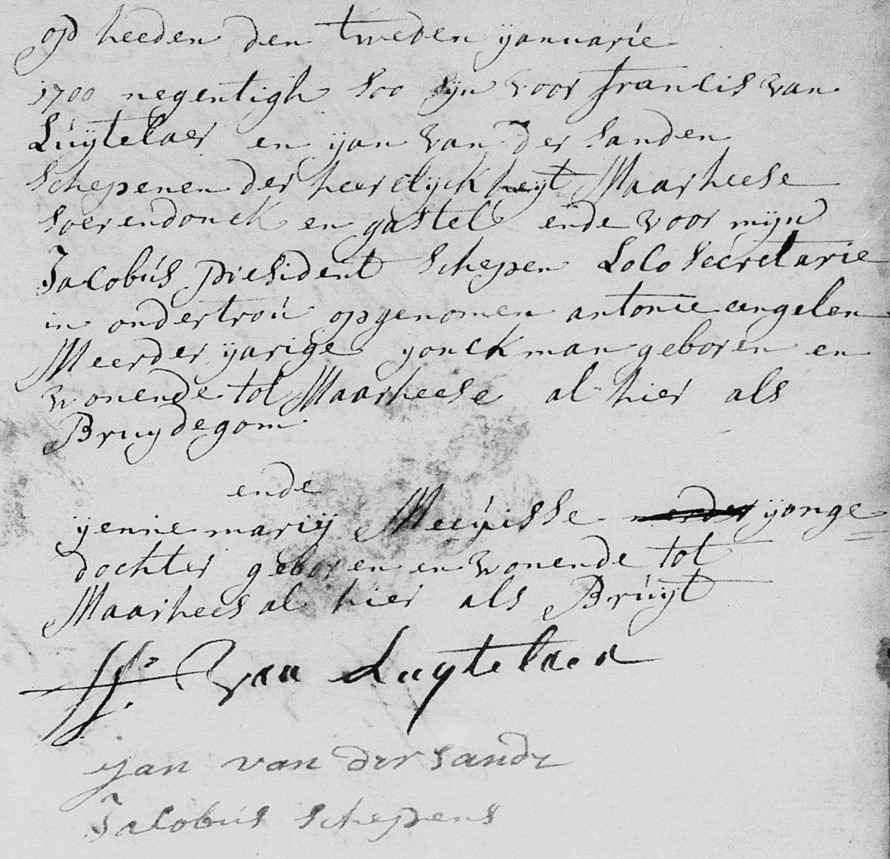 op heeden den tweden yanuarie
1700 negentigh soo sÿn voor francis van
Luÿtelaer en yan van der sanden
schepenen der heerelyckheyt Maarheese
soerendonck en gastel ende voor mÿn
Jacobus president schepen Loco secretarie
in ondertrou opgenomen antonie engelen
Meerder yarige yonckman geboren en
wonende tot Maarheese al hier als
Bruydegom
ende
yenne marij Meeuisse yonge
dochter geboren en wonende tot
Maarhees al hier als Bruÿt
van Luytelaer
yan van der sande
Jacobus schepens